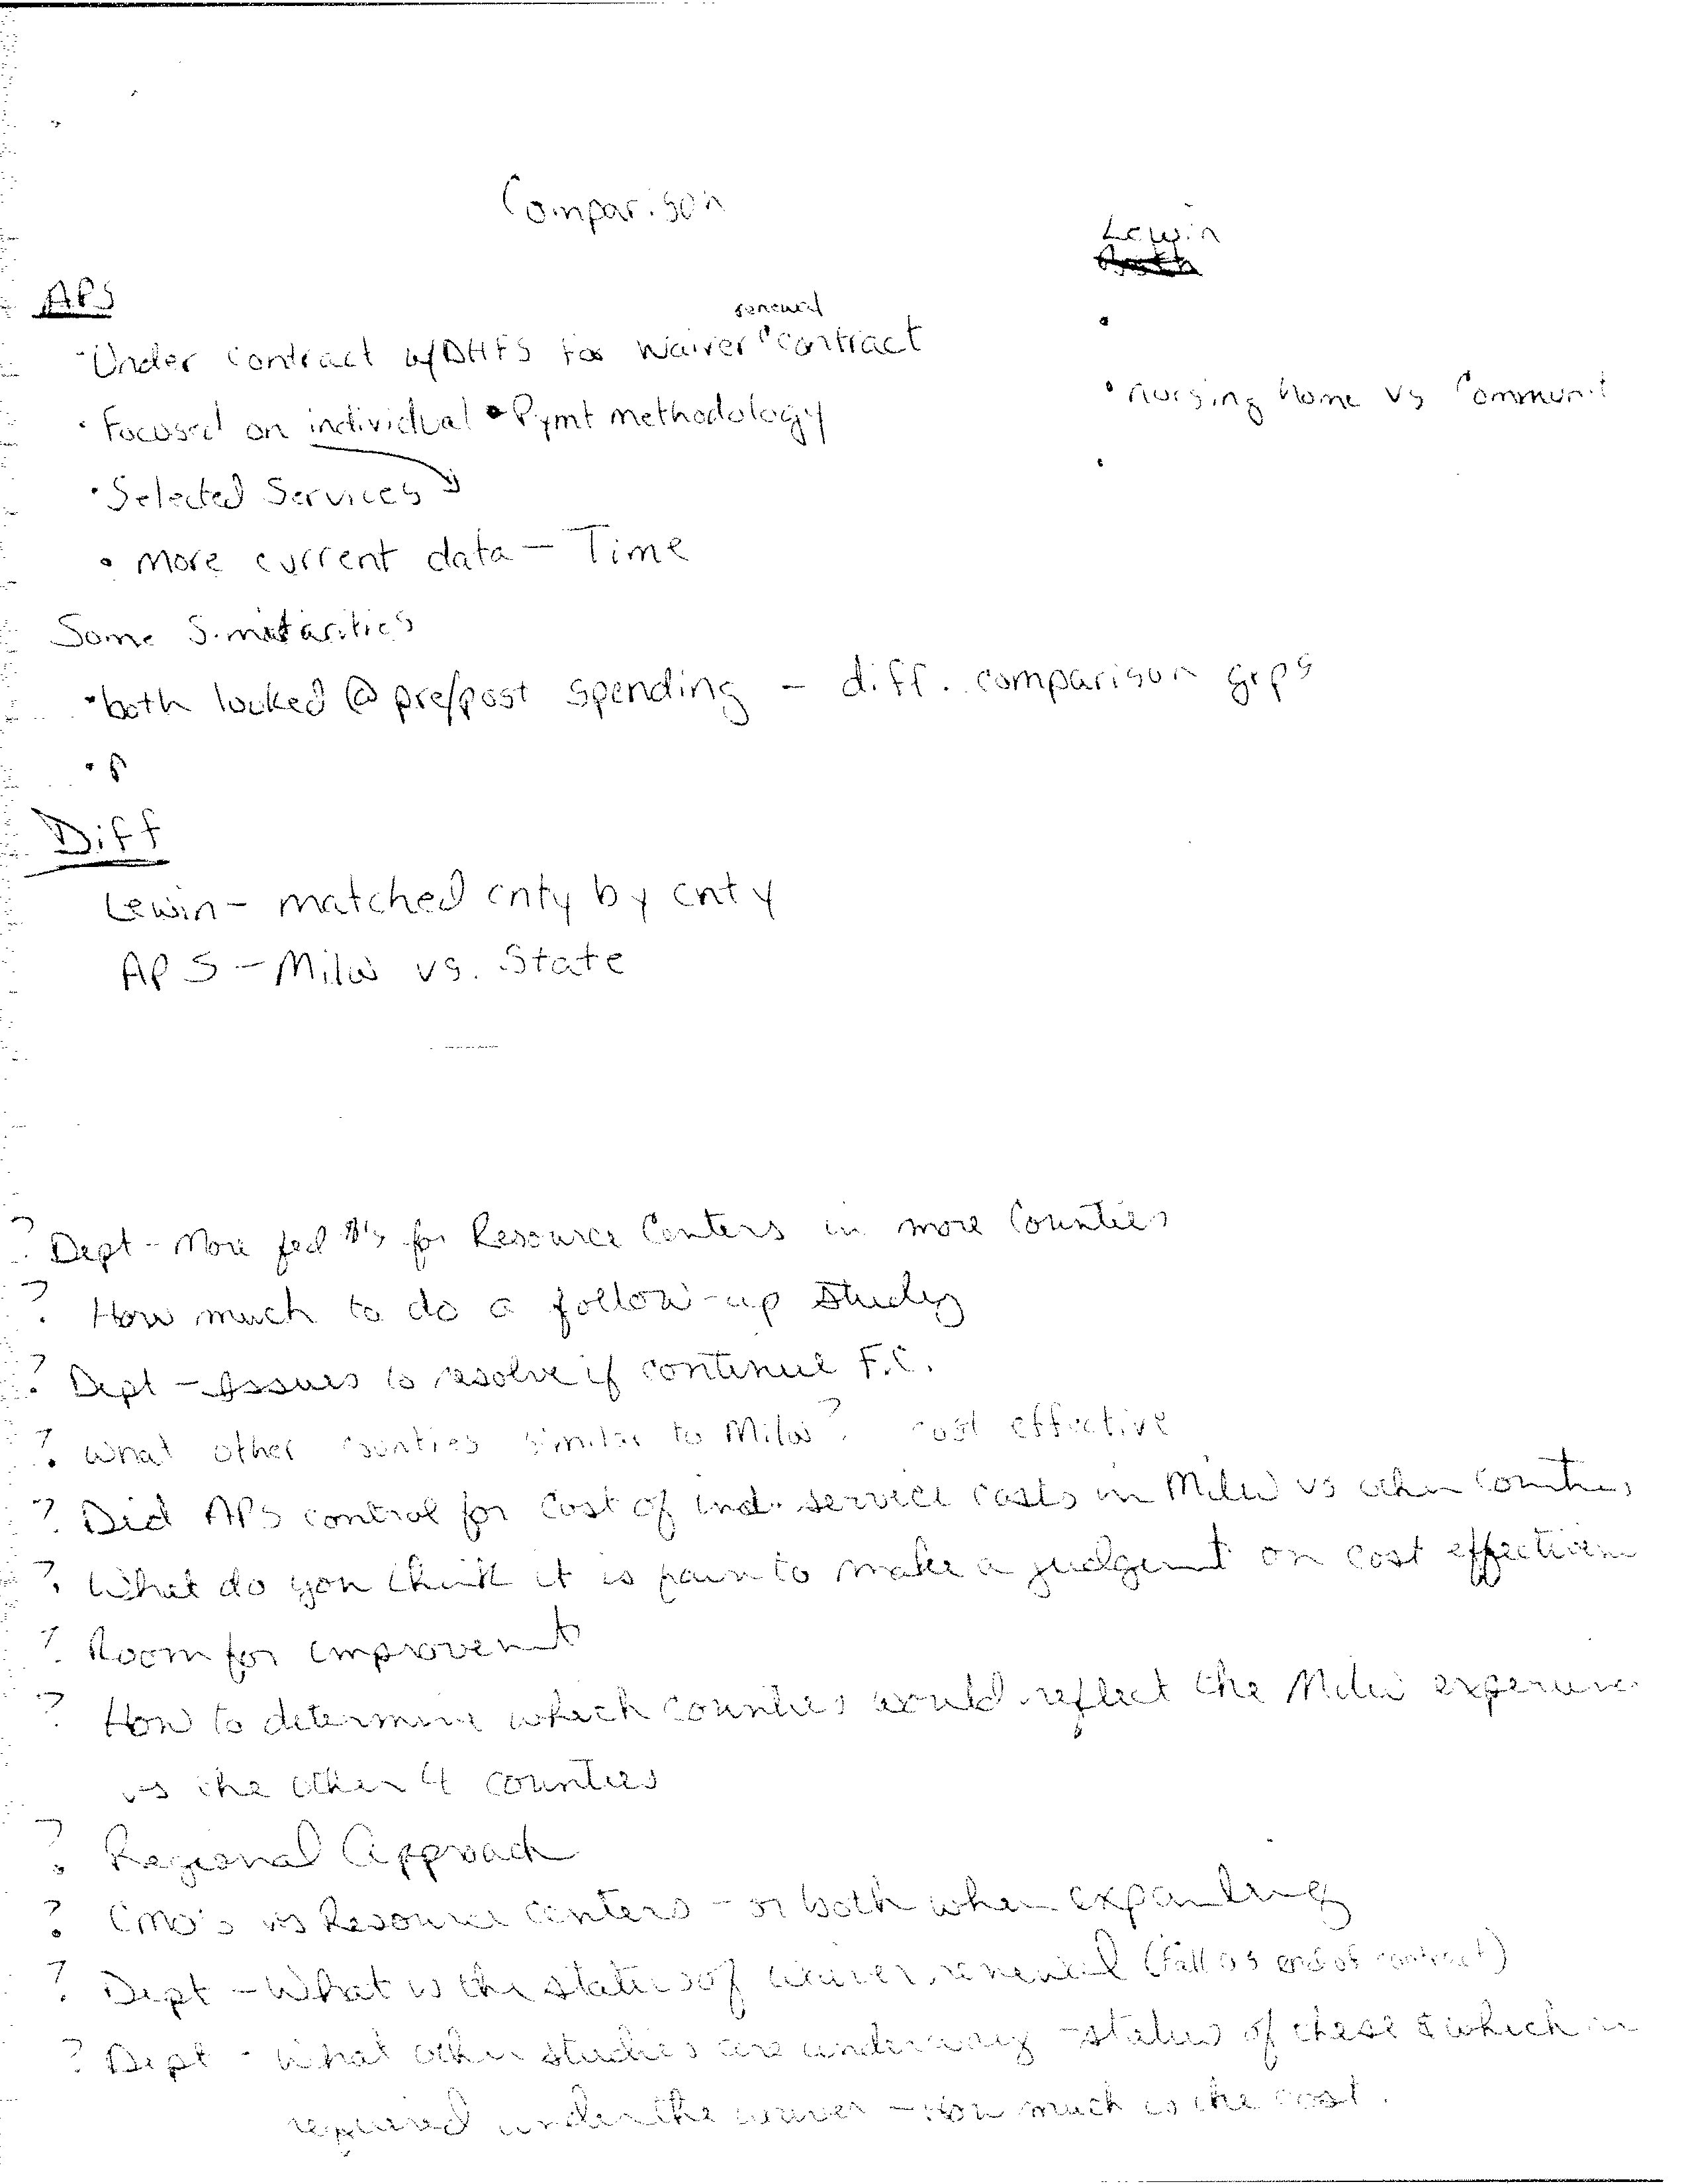 Comparison
Lewin
APS
renewal
• Under contract w/DHFS for Waiver contract
• Focused on individual • Pymt methodology
• Nursing home vs Communit
• Selected Services
• More current data - Time
Some Similarities
• both looked @ pre/post spending - diff. comparison grps
Diff
Lewin - matched cnty by cnty
APS - Milw vs. State
? Dept - More fed $'s for Resource Centers in more Counties
? How much to do a follow-up study
? Dept - Issues to resolve if continue F.C.
? What other counties similar to Milw? cost effective
? Did APS control for cost of ind. service costs in Milw vs other counties
? What do you think it is to make a judgment on cost effectiven
? Room for improvement
? How to determine which counties would reflect the Milw experience
vs the other 4 counties
? Regional Approach
? CMO's vs Resource Centers - or both when expanding
? Dept - What is the status of waiver renewal (Fall 03 end of contract)
? Dept - What other studies are underway - status of these & which
required under the waiver - How much is the cost.